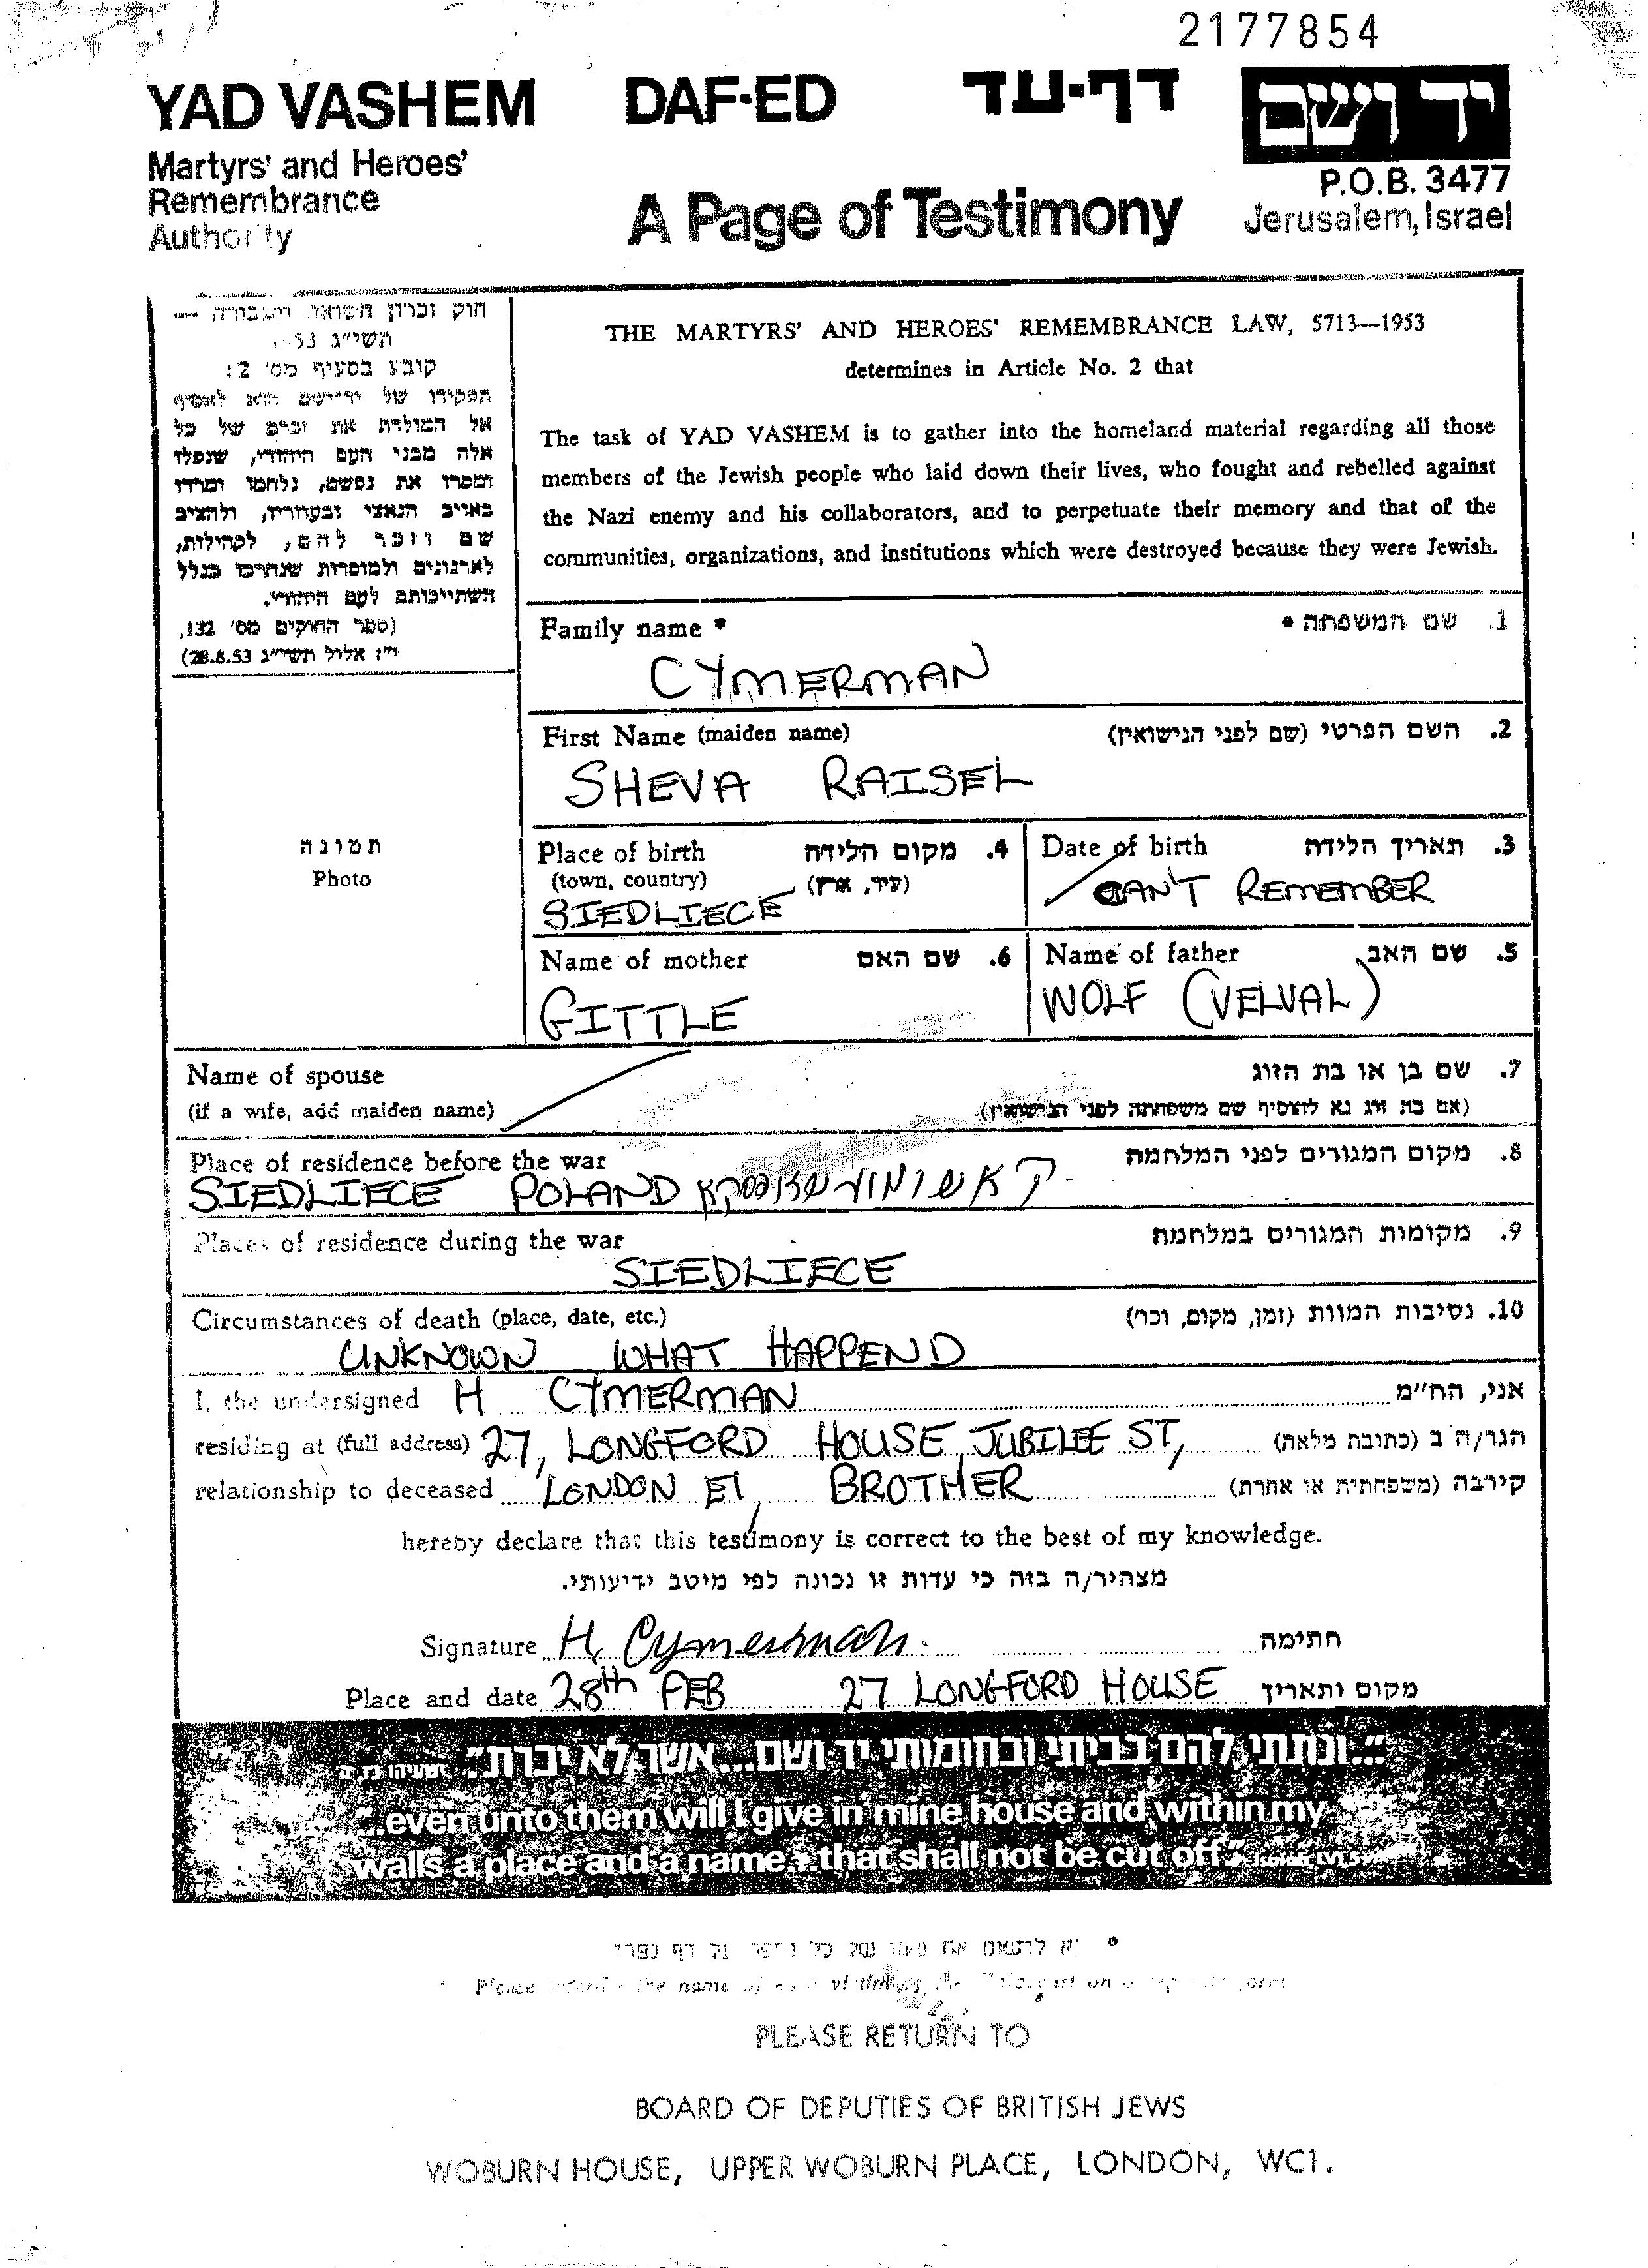 2177854
YAD VASHEM DAF-ED דף-עד יד ושם
Martyrs' and Heroes'
Remembrance
Authority
A Page of Testimony
P.O.B. 3477
Jerusalem, Israel
חוק זכרון השואה והגבורה —
תשי"ג 53
קובע בסעיף מס' 2:
תפקידו של יד-ושם הוא לאסוף
אל המולדת את זכרם של כל
אלה מבני העם היהודי, שנפלו
ומסרו את נפשם, נלחמו ומרדו
באויב הנאצי ובעוזריו, ולהציב
שם וזכר להם, לקהילות,
לארגונים ולמוסדות שנחרבו בגלל
השתייכותם לעם היהודי.
(ספר החוקים מס' 132,
י"ז אלול תשי"ג 28.8.53)
תמונה
Photo
THE MARTYRS' AND HEROES' REMEMBRANCE LAW, 5713—1953
determines in Article No. 2 that
The task of YAD VASHEM is to gather into the homeland material regarding all those
members of the Jewish people who laid down their lives, who fought and rebelled against
the Nazi enemy and his collaborators, and to perpetuate their memory and that of the
communities, organizations, and institutions which were destroyed because they were Jewish.
Family name * 1. שם המשפחה *
CYMERMAN
First Name (maiden name) 2. השם הפרטי (שם לפני הנישואין)
SHEVA RAISEL
Place of birth 4. מקום הלידה
(town, country) (עיר, ארץ)
SIEDLIECE
Date of birth 3. תאריך הלידה
CAN'T REMEMBER
Name of mother 6. שם האם
GITTLE
Name of father 5. שם האב
WOLF (VELVAL)
Name of spouse 7. שם בן או בת הזוג
(if a wife, add maiden name) (אם בת זוג נא להוסיף שם משפחתה לפני הנישואין)
Place of residence before the war 8. מקום המגורים לפני המלחמה
SIEDLIECE POLAND
Places of residence during the war 9. מקומות המגורים במלחמה
SIEDLIECE
Circumstances of death (place, date, etc.) 10. נסיבות המוות (זמן, מקום, וכו')
UNKNOWN WHAT HAPPEND
I, the undersigned H CYMERMAN אני, הח"מ
residing at (full address) 27, LONGFORD HOUSE, JUBILEE ST, הגר/ה ב (כתובת מלאה)
relationship to deceased LONDON E1, BROTHER קירבה (משפחתית או אחרת)
hereby declare that this testimony is correct to the best of my knowledge.
מצהיר/ה בזה כי עדות זו נכונה לפי מיטב ידיעותי.
Signature H. Cymerman. חתימה
Place and date 28th FEB 27 LONGFORD HOUSE מקום ותאריך
"...ונתתי להם בביתי ובחומותי יד ושם...אשר לא יכרת" ישעיהו נו ה
"...even unto them will I give in mine house and within my
walls a place and a name... that shall not be cut off"
* נא לרשום את שמו של כל נספה על דף נפרד
Please the name of on
PLEASE RETURN TO
BOARD OF DEPUTIES OF BRITISH JEWS
WOBURN HOUSE, UPPER WOBURN PLACE, LONDON, WC1.